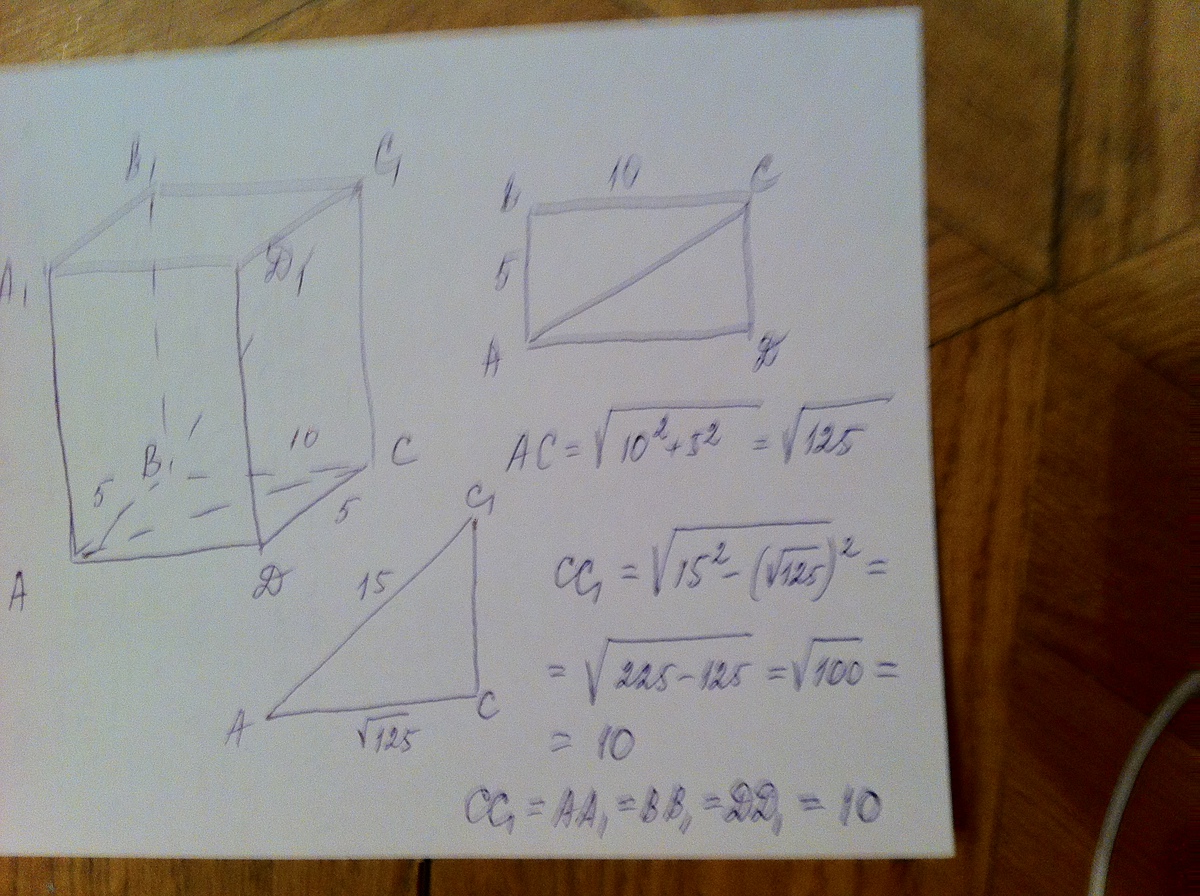 B₁ C₁
A₁ D₁
5 B₁ 10 C
5
A D
10
B C
5
A D
AC = √(10² + 5²) = √125
C₁
15
A C
√125
CC₁ = √(15² - (√125)²) =
= √(225 - 125) = √100 =
= 10
CC₁ = AA₁ = BB₁ = DD₁ = 10